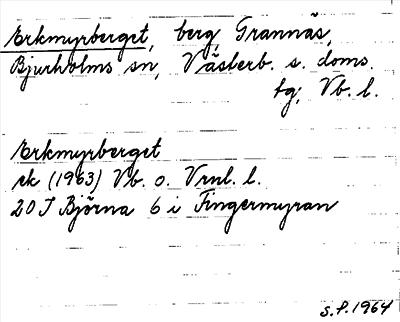 Erkmyrberget, berg, Grannäs,
Bjurholms sn, Västerb. s. doms.
tg, Vb. l.
Erkmyrberget
ek (1963) Vb. o. Vrnl. l.
20 J Björna 6 i Fingermyran
S.P. 1964